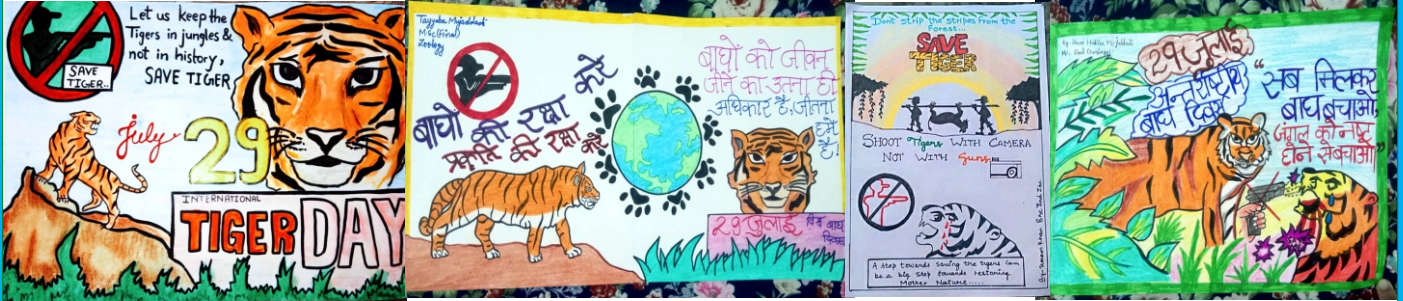 Let us keep the
Tigers in jungles &
not in history,
SAVE TIGER
SAVE
TIGER..
July
29
INTERNATIONAL
TIGER DAY
Tayyaba Mujaddadi
M.Sc(Final)
Zoology
बाघों की रक्षा करे
प्रकृति की रक्षा करे
बाघो को जीवन
जीने का उतना ही
अधिकार है, जीतना
हमे
है!
29 जुलाई
विश्व बाघ
दिवस
Dont strip the stripes from the
Forest...
SAVE
TIGER
SHOOT Tigers WITH CAMERA
NOT WITH Guns
A step towards saving the tigers can
be a big step towards restoring
Mother Nature.....
29 जुलाई
अन्तर्राष्ट्रीय
बाघ दिवस
"सब मिलकर
बाघ बचाओ,
जंगल को नष्ट
होने से बचाओ"